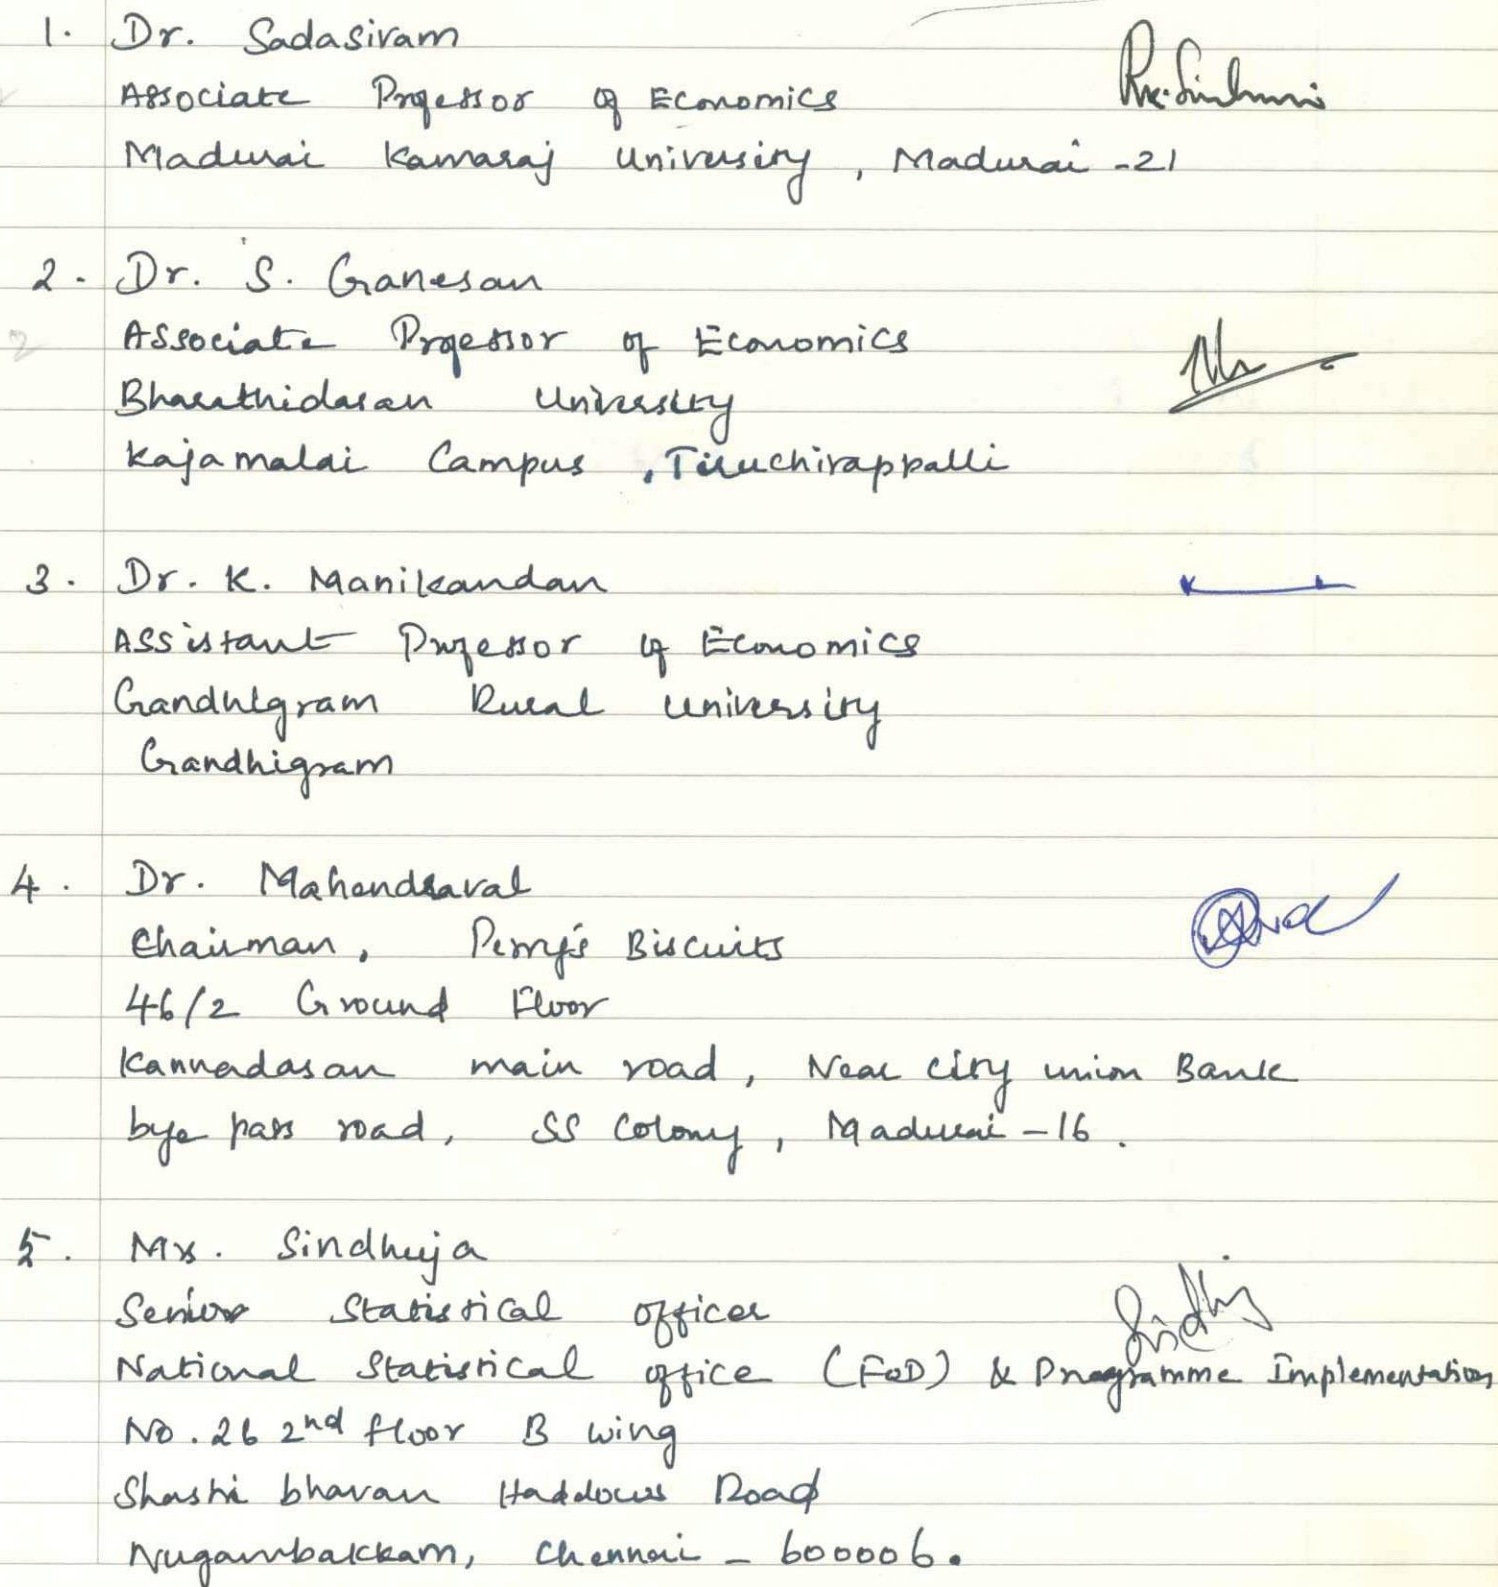 1. Dr. Sadasivam
Associate Professor of Economics
Madurai Kamaraj University, Madurai -21
2. Dr. S. Ganesan
Associate Professor of Economics
Bharathidasan University
Kajamalai Campus, Tiruchirappalli
3. Dr. K. Manikandan
Assistant Professor of Economics
Gandhigram Rural University
Gandhigram
4. Dr. Mahendravel
Chairman, Perry's Biscuits
46/2 Ground Floor
Kannadasan main road, Near city union Bank
bye pass road, SS Colony, Madurai -16.
5. Mrs. Sindhuja
Senior Statistical officer
National Statistical office (FOD) & Programme Implementation
No. 26 2nd floor B wing
Shastri bhavan Haddows Road
Nugambakkam, Chennai - 600006.